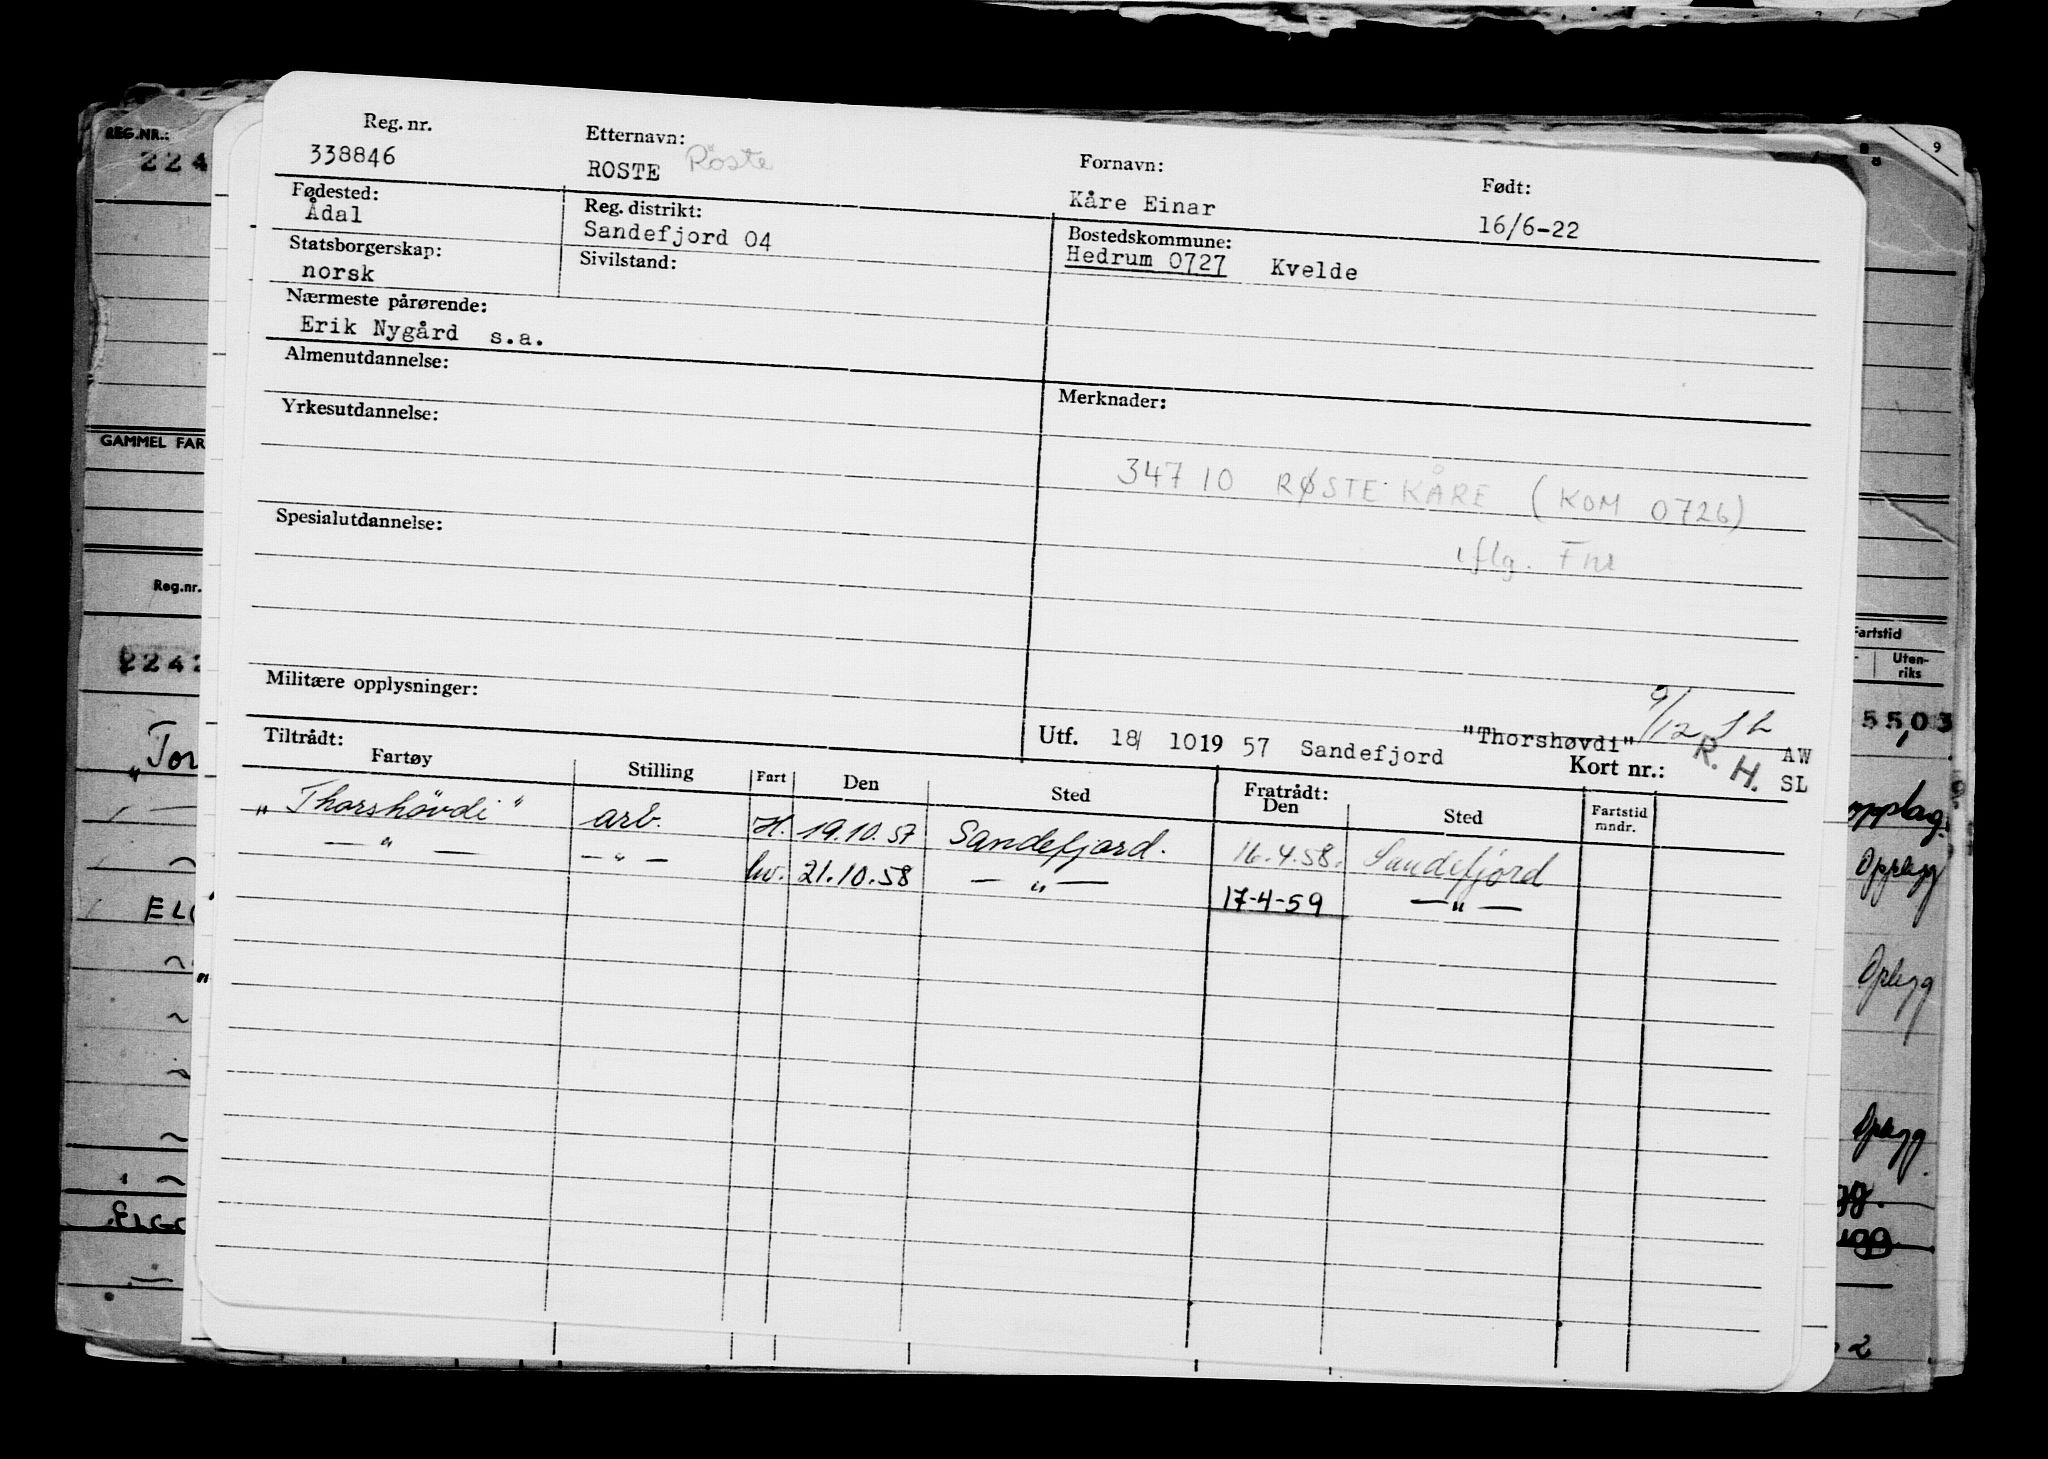 Reg. nr. Etternavn: Fornavn: Født:
338846 ROSTE Röste Kåre Einar 16/6-22
Fødested: Reg. distrikt: Bostedskommune:
Ådal Sandefjord 04 Hedrum 0727 Kvelde
Statsborgerskap: Sivilstand:
norsk
Nærmeste pårørende:
Erik Nygård s.a.
Almenutdannelse:
Yrkesutdannelse: Merknader:
34710 RØSTE KÅRE (KOM 0726)
iflg. Fnr
Spesialutdannelse:
Militære opplysninger:
9/12 SL
Utf. 18/ 1019 57 Sandefjord "Thorshøvdi" R. H. AW
Tiltrådt: Kort nr.: SL
Fartøy Stilling Fart Den Sted Fratrådt: Den Sted Fartstid mndr.
"Thorshövdi" arb. H. 19.10.57 Sandefjord. 16.4.58. Sandefjord
— " — — " — hv. 21.10.58 — " — 17-4-59 — " —
REG.NR.:
224
GAMMEL FAR
Reg.nr.
2242
"Tor
ELG
9
Fartstid
Uten-
riks
55,03
opplag.
Opplegg
Oplegg
Oplegg
2